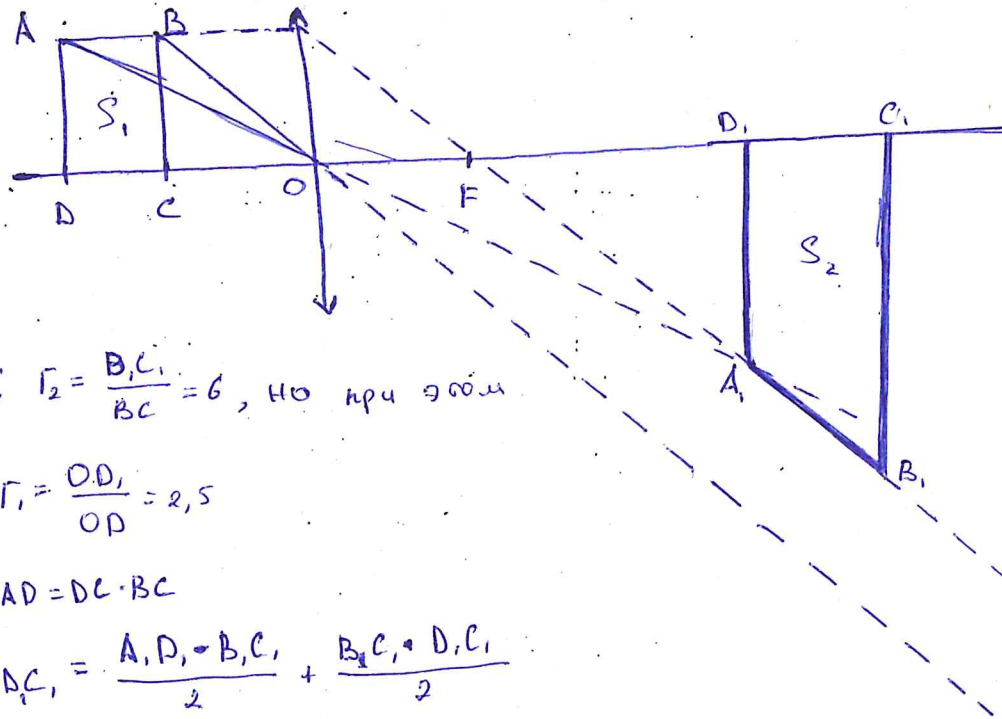 A B
S₁
D C O F
D₁ C₁
S₂
A₁
B₁
: Г₂ = B₁C₁ / BC = 6, но при этом
Г₁ = OD₁ / OD = 2,5
AD = DC · BC
D₁C₁ = A₁D₁ · B₁C₁ / 2 + B₁C₁ · D₁C₁ / 2